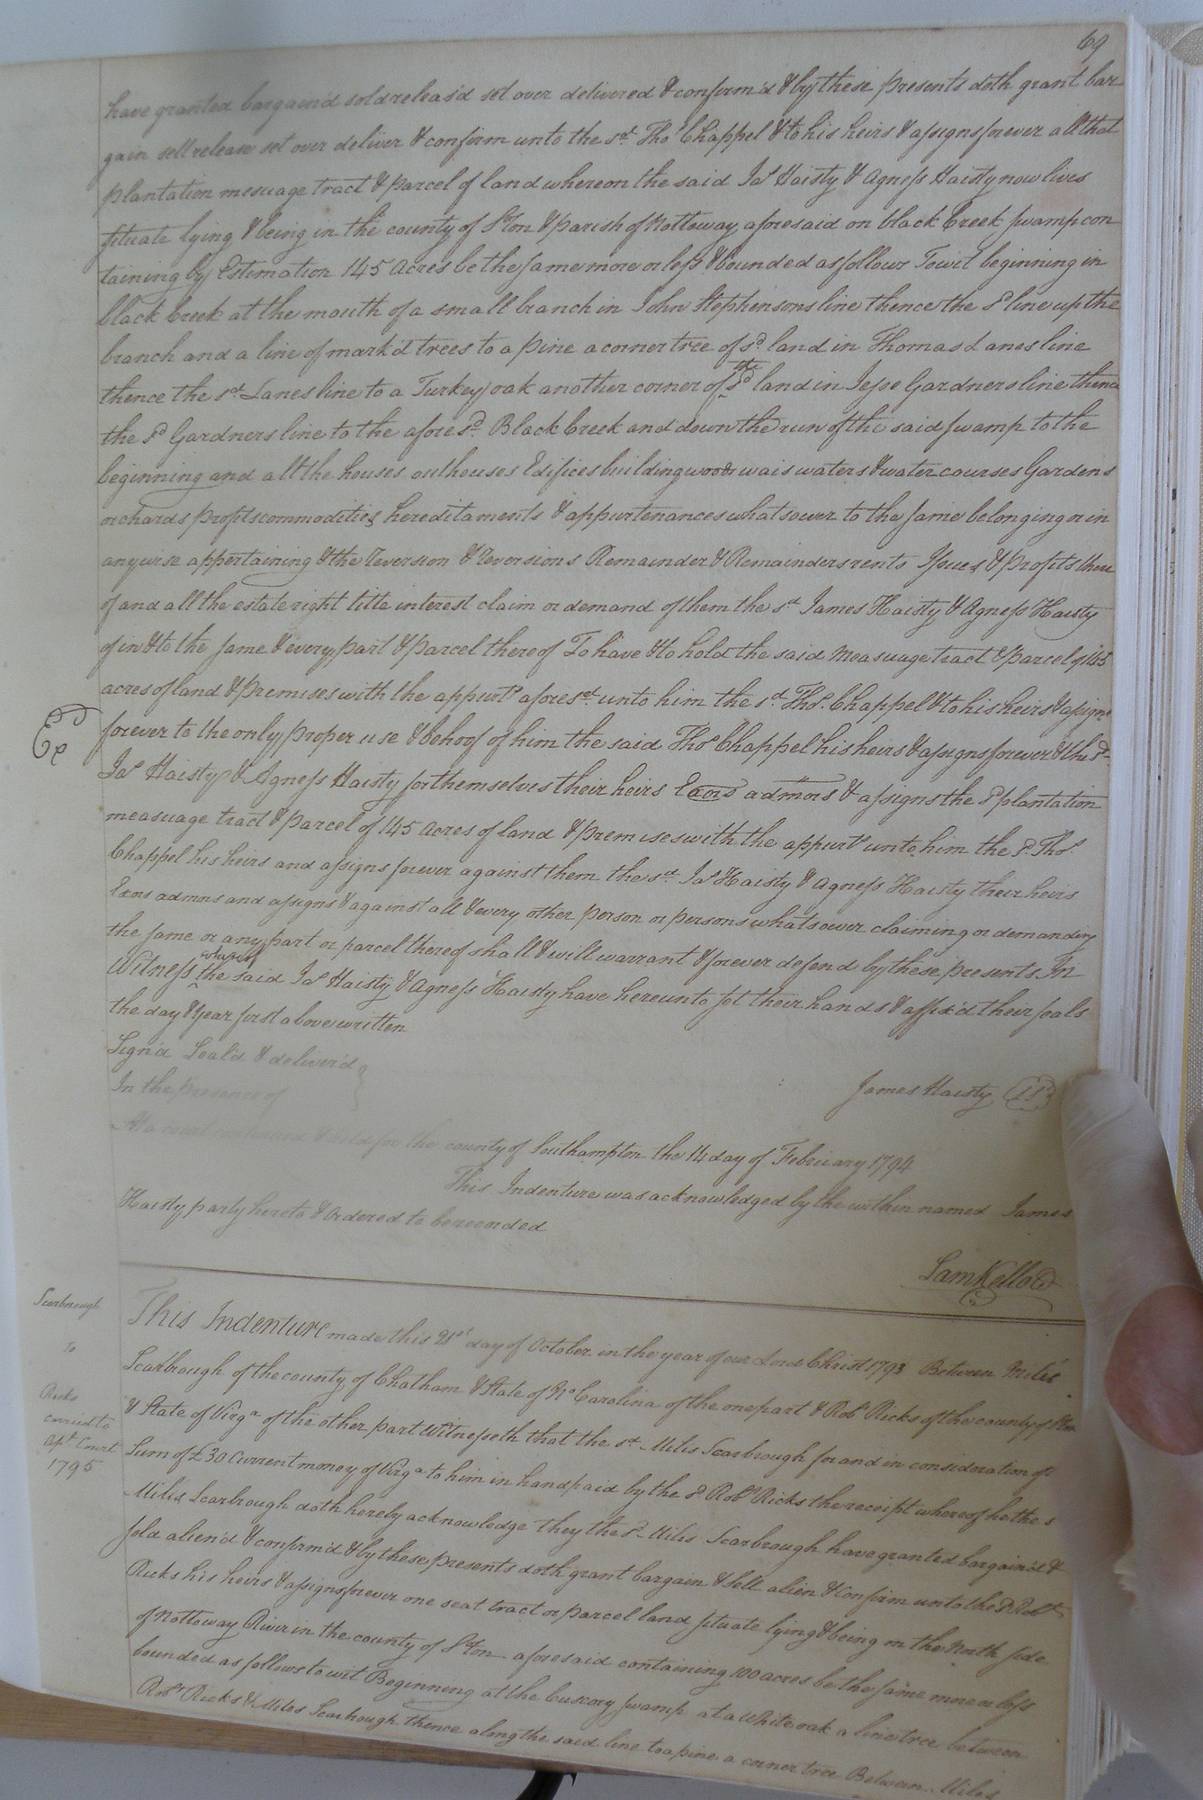 69
have granted bargain'd sold releas'd set over delivered & confirm'd & by these presents doth grant bar
gain sell release set over deliver & confirm unto the sd. Thos Chappel & to his heirs & assigns forever all that
plantation mesuage tract & parcel of land whereon the said Jas Haisty & Agness Haisty now lives
situate lying & being in the county of Sºton & parish of Nottoway aforesaid on black Creek swamp con
taining by Estimation 145 Acres be the same more or less & bounded as follows Towit beginning in
black Creek at the mouth of a small branch in John Stephensons line thence the sd line up the
branch and a line of mark'd trees to a pine a corner tree of sd. land in Thomas Lanes line
thence the sd Lanes line to a Turkey oak another corner of the sd land in Jesse Gardners line thence
the sd Gardners line to the afore sd. Black Creek and down the run of the said swamp to the
beginning and all the houses outhouses Edifices building woods wais waters & water courses Gardens
orchards profits commodities hereditaments & appurtenances whatsower to the same belonging or in
anywise appertaining & the Reversion & Reversions Remainder & Remainders rents Issues & Profits there
of and all the estate right title interest claim or demand of them the sd James Haisty & Agness Haisty
of in & to the same & every part & parcel thereof To have & to hold the said Measuage tract & parcel of 145
acres of land & premises with the appurts aforesd. unto him the sd. Thos. Chappel & to his heirs & assigns
forever to the only proper use & behoof of him the said Thos Chappel his heirs & assigns forever & the sd
Ex
Jas Haisty & Agness Haisty for themselves their heirs Exors admors & assigns the sd plantation
measuage tract & parcel of 145 Acres of land & premises with the appurts unto him the sd. Thos.
Chappel his heirs and assigns forever against them the sd. Jas Haisty & Agness Haisty their heirs
Exors admors and assigns & against all & every other person or persons whatsower claiming or demanding
the same or any part or parcel thereof shall & will warrant & forever defend by these presents In
Witness whereof the said Jas Haisty & Agness Haisty have hereunto set their hands & affix'd their seals
the day & year first above written
Sign'd Seal'd & deliver'd
In the presence of
James Haisty (LS)
At a court held for the county of Southampton the 14 day of February 1794
This Indenture was acknowledged by the within named James
Haisty party hereto & ordered to be recorded
Sam Kello
Scarbrough
To
Ricks
carried to
Apl. Court
1795
This Indenture made this 21st day of October in the year of our Lord Christ 1793 Between Miles
Scarbrough of the county of Chatham & State of No Carolina of the one part & Robt Ricks of the county of
& State of Virga of the other part Witnesseth that the sd. Miles Scarbrough for and in consideration of
Sum of £30 Current money of Virga to him in hand paid by the sd Robt Ricks the receipt whereof he the s
Miles Scarbrough doth hereby acknowledge they the sd. Miles Scarbrough have granted bargain'd &
sold alien'd & confirm'd & by these presents doth grant bargain & sell alien & Confirm unto the sd Robt
Ricks his heirs & assigns forever one seat tract or parcel land situate lying & being on the North side
of Nottoway River in the county of Sºton aforesaid containing 100 acres be the same more or less
bounded as follows to wit Beginning at the buscory swamp at a White oak a line tree between
Robt Ricks & Miles Scarbrough thence along the said line to a pine a corner tree Between Miles